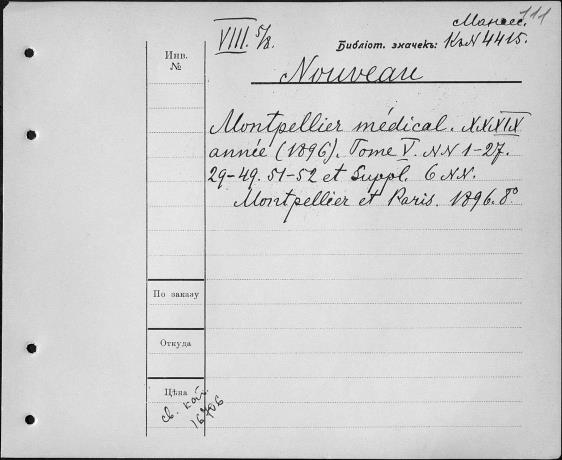 111
Манес.
VIII. 5/8. Библіот. значекъ: К.ъ N 4415.
Инв.
№
Nouveau
Montpellier médical. XXXIX
année (1896). Tome V. NN 1-27.
29-49. 51-52 et Suppl. 6 NN.
Montpellier et Paris. 1896. 8º
По заказу
Откуда
Цѣна
св. кат.
16706